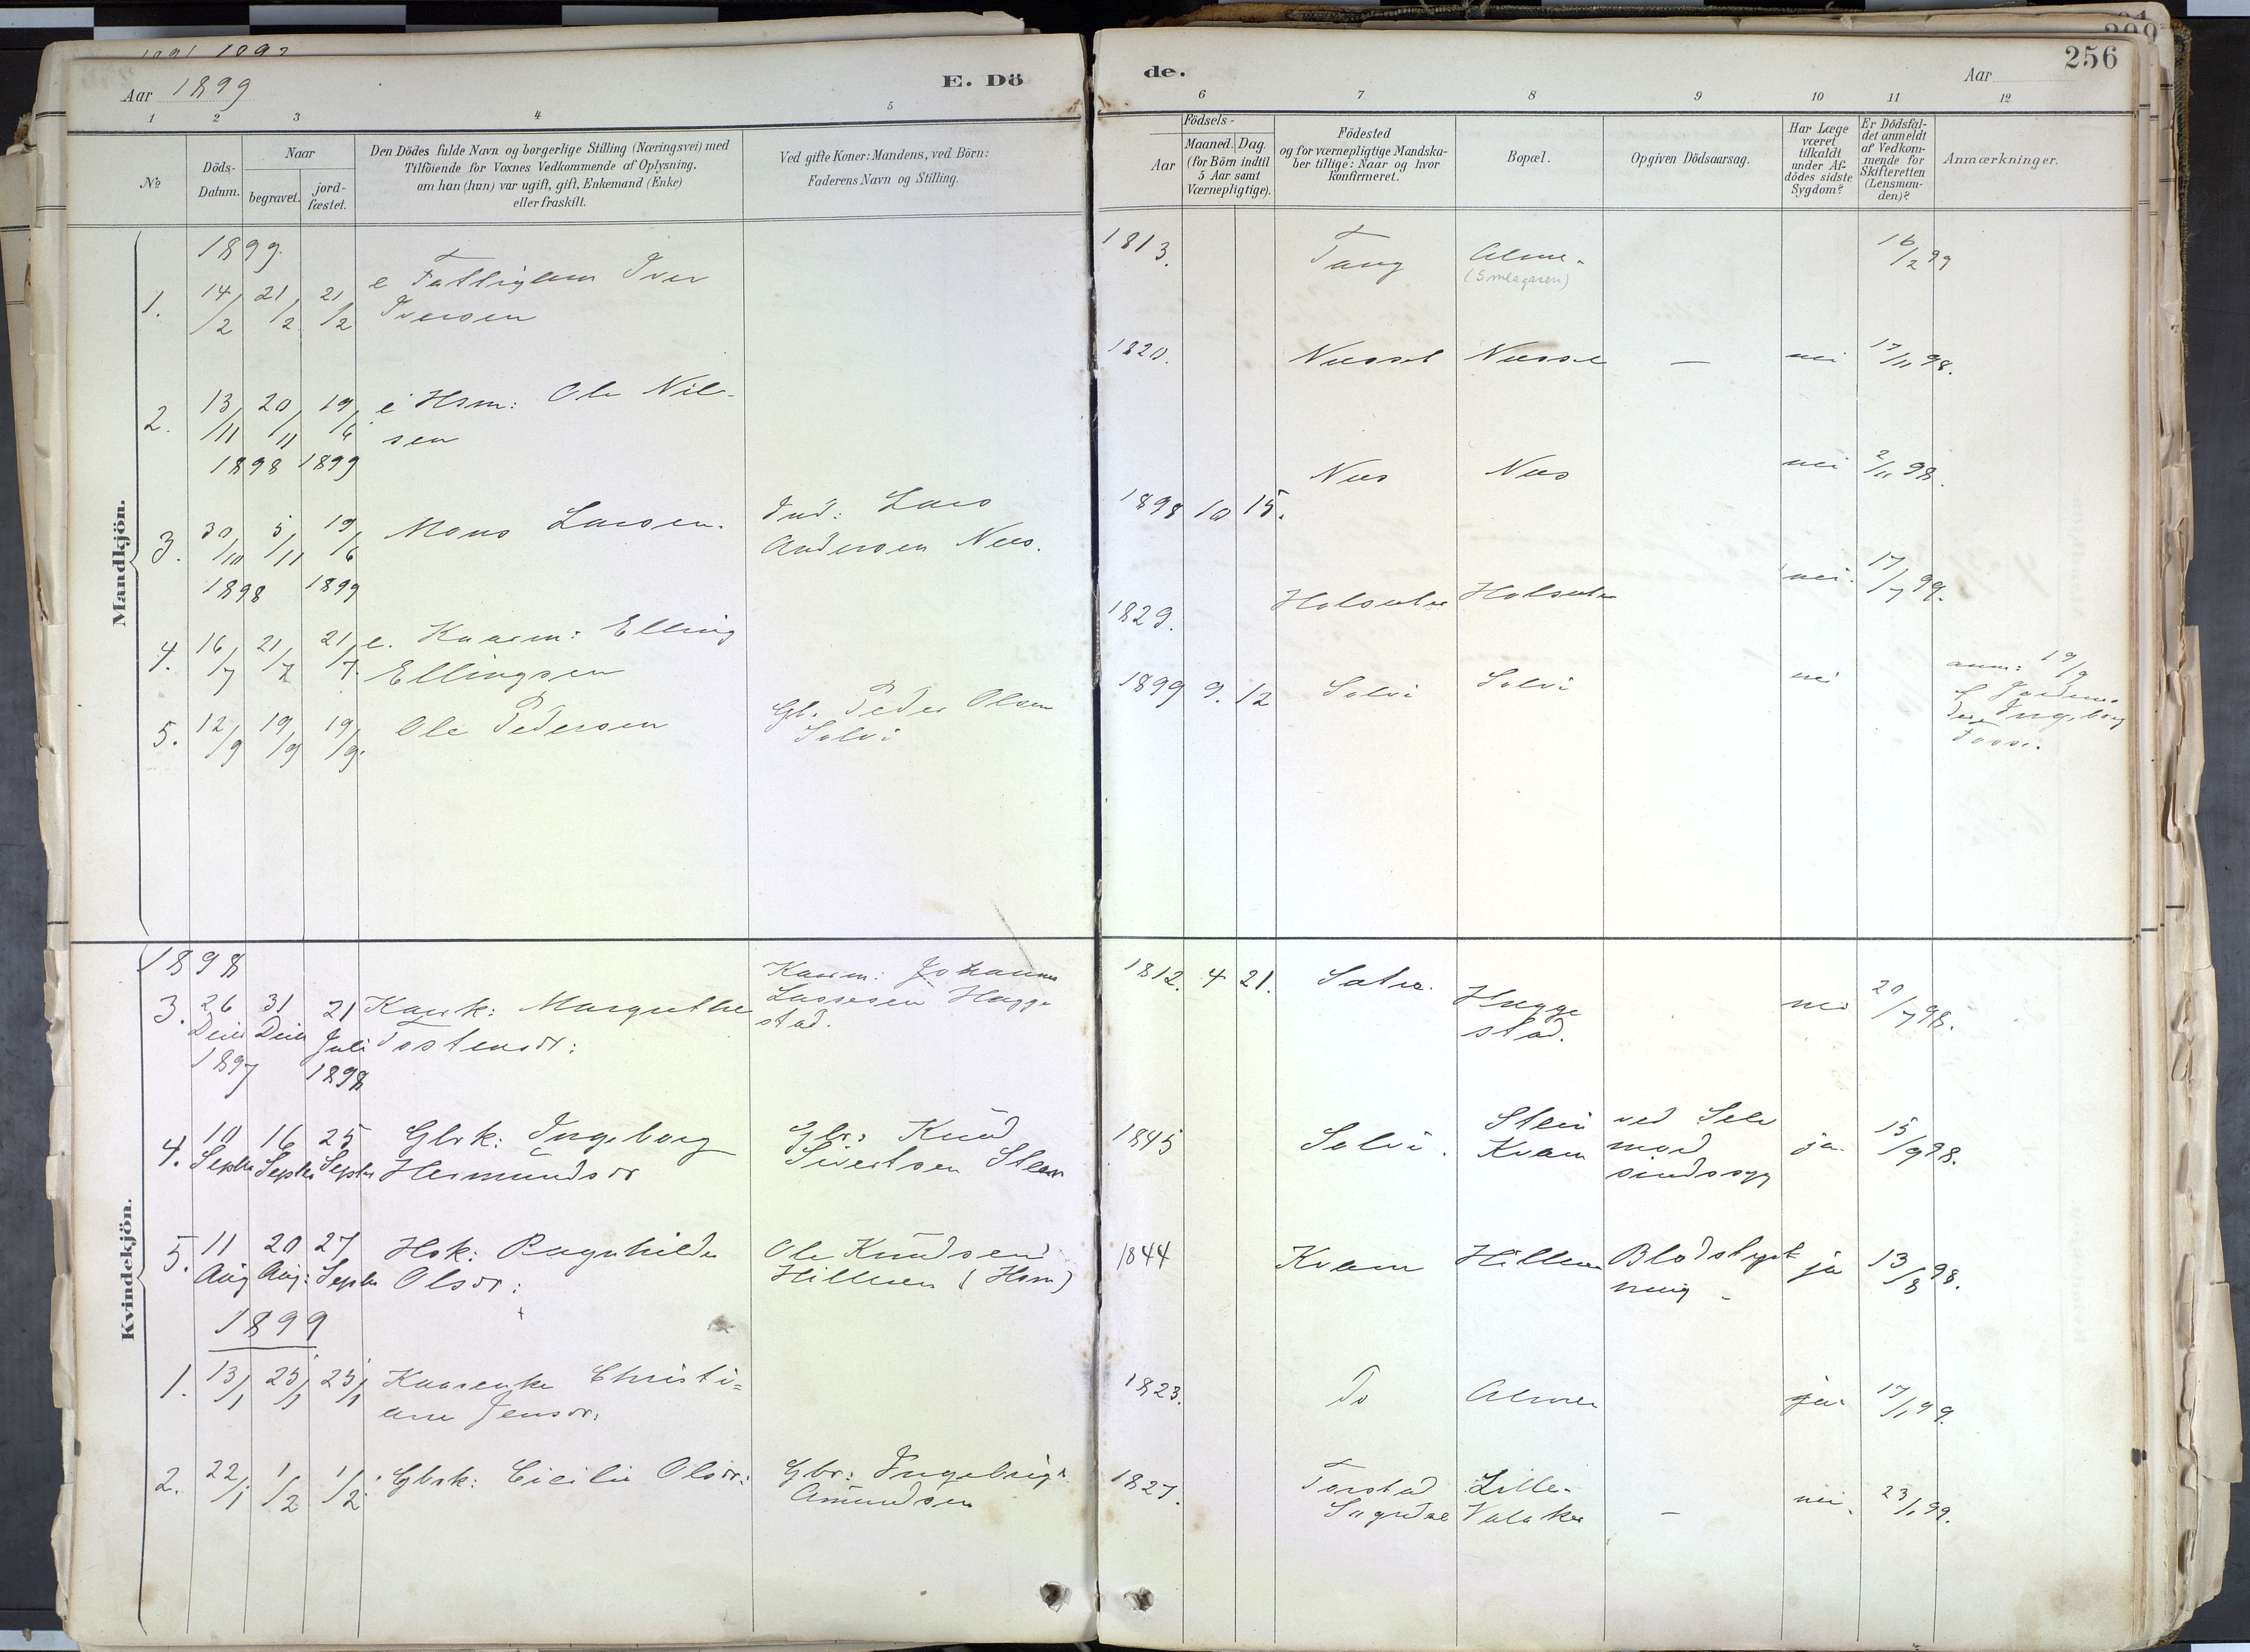 Aar 1899
E. Dö
de.
Aar
256
1 2 3 4 5 6 7 8 9 10 11 12
No
Döds-
Datum.
Naar
begravet.
jord-
fæstet.
Den Dödes fulde Navn og borgerlige Stilling (Næringsvei) med
Tilföiende for Voxnes Vedkommende af Oplysning,
om han (hun) var ugift, gift, Enkemand (Enke)
eller fraskilt.
Ved gifte Koner: Mandens, ved Börn:
Faderens Navn og Stilling.
Födsels-
Aar
Maaned. Dag.
(for Börn indtil
5 Aar samt
Værnepligtige).
Födested
og for værnepligtige Mandska-
ber tillige: Naar og hvor
konfirmeret.
Bopæl.
Opgiven Dödsaarsag.
Har Læge
været
tilkaldt
under Af-
dödes sidste
Sygdom?
Er Dödsfal-
det anmeldt
af Vedkom-
mende for
Skifteretten
(Lensman-
den)?
Anmærkninger.
Mandkjön.
1899.
1. 14/2 21/2 21/2 e Fattiglem Iver
Iversen
1813. Tang Alme. 16/2 99
2. 13/11 20/11 19/6 e Hsm: Ole Nil-
sen
1898 1899
1820. — nei 17/11 98.
3. 30/10 5/11 19/6 Mons Larsen.
Ind: Lars
Andersen Nes.
1898 1899
1898 10 15. Nes Nes nei 2/11 98.
4. 16/7 21/7 21/7 e. Kaarm: Elling
Ellingsen
1829. nei. 17/7 99.
5. 12/9 19/9 19/9. Ole Pedersen
Gb. Peder Olsen
Solvi
1899 9. 12 Solvi Solvi nei
anm: 19/9
Ingeborg
Kvindekjön.
1898
3. 26 31 21 Kaark: Margrethe
Decbr Decbr Juli Tostensdr:
1897 1898
Kaarm: Johannes
Lassesen Hagge
stad.
1812. 4 21. Hagge
stad. nei 20/7 98.
4. 10 16 25 Gbrk: Ingeborg
Septbr Septbr Septbr Hermundsdr
Gbr: Knud
Sivertsen Stein
1845 Solvi. Stein
Kvam
ved Selv
mord
sindssyg
ja 15/9 98.
5. 11 20 27 Hsk: Ragnhilde
Aug Aug: Septbr Olsdr:
Ole Knudsen
Hilleren (Hsm)
1844 Kvam Hilleren Blodstyrt
ning - ja 13/8 98.
1899
1. 13/1 25/1 25/1 Kaarenke Christi=
ane Jensdr.
1823. Do Almen ja. 17/1 99.
2. 22/1 1/2 1/2. Gbrk: Cicilie Olsdr:
Gbr: Ingebrigt
Amundsen
1827. Torstad
Sogndal
Lille-
Valaker
— nei. 23/1 99.